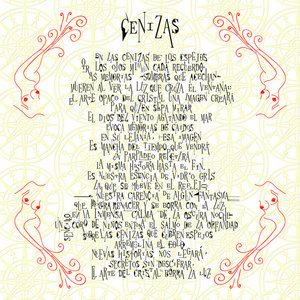 CENIZAS
EN LAS CENIZAS DE LOS ESPEJOS
LOS OJOS MIRAN CADA RECUERDO,
MEMORIAS -SOMBRAS QUE ACECHAN-
MUEREN AL VER LA LUZ QUE CRUZA EL VENTANAL
EL ARTE OPACO DEL CRISTAL UNA IMAGEN CREARÁ
PARA QUIEN SEPA MIRAR
EL DIOS DEL VIENTO AGITANDO EL MAR
EVOCA MEMORIAS DE CAÍDOS
EN SU LEJANÍA ESA IMAGEN
ES MANCHA DEL TIEMPO QUE VENDRÁ
EN PARPADEO REPETIRÁ
LA MISMA HISTORIA HASTA EL FIN.
ES NUESTRA ESENCIA DE VIDRIO GRIS
LA QUE SE MUEVE EN EL REFLEJO
NUESTRA CARENCIA DE ALGÚN FANTASMA
QUE MUERDA Y SE BORRA CON LA LUZ
EN LA INMENSA CALMA DE LA OSCURA NOCHE
UN CORO DE NIÑOS ENTONA EL SALMO DE LA OPACIDAD
SOBRE LAS CENIZAS QUE CUBREN ESPEJOS
ARREMOLINA EL
NUEVAS HISTORIAS NOS LEGARÁ
SECRETOS SIN DESCIFRAR
EL ARTE DEL CRISTAL BORRA LA LUZ